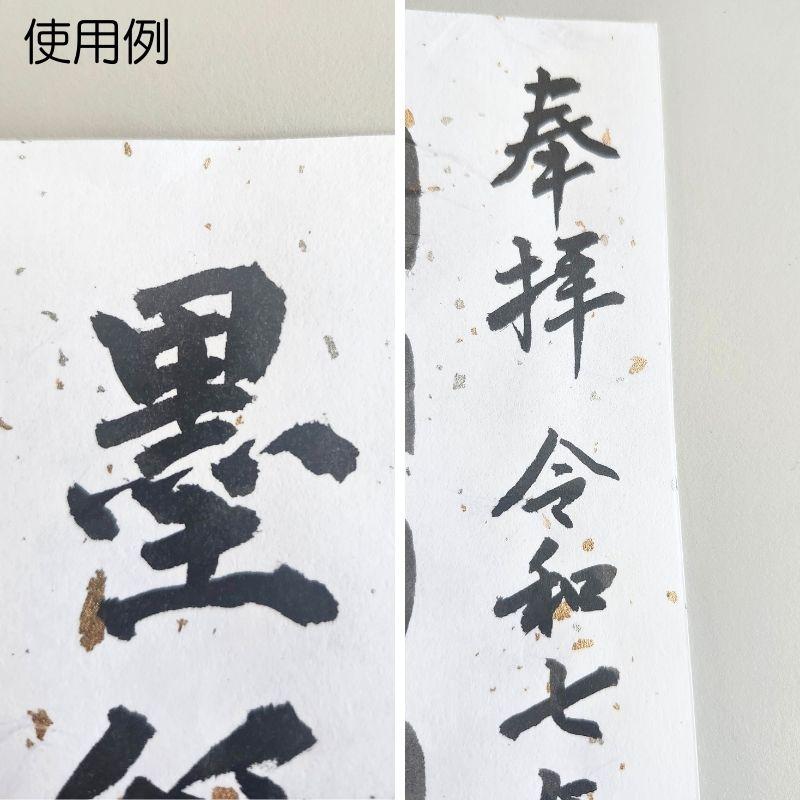 使用例
墨
奉拝
令和七